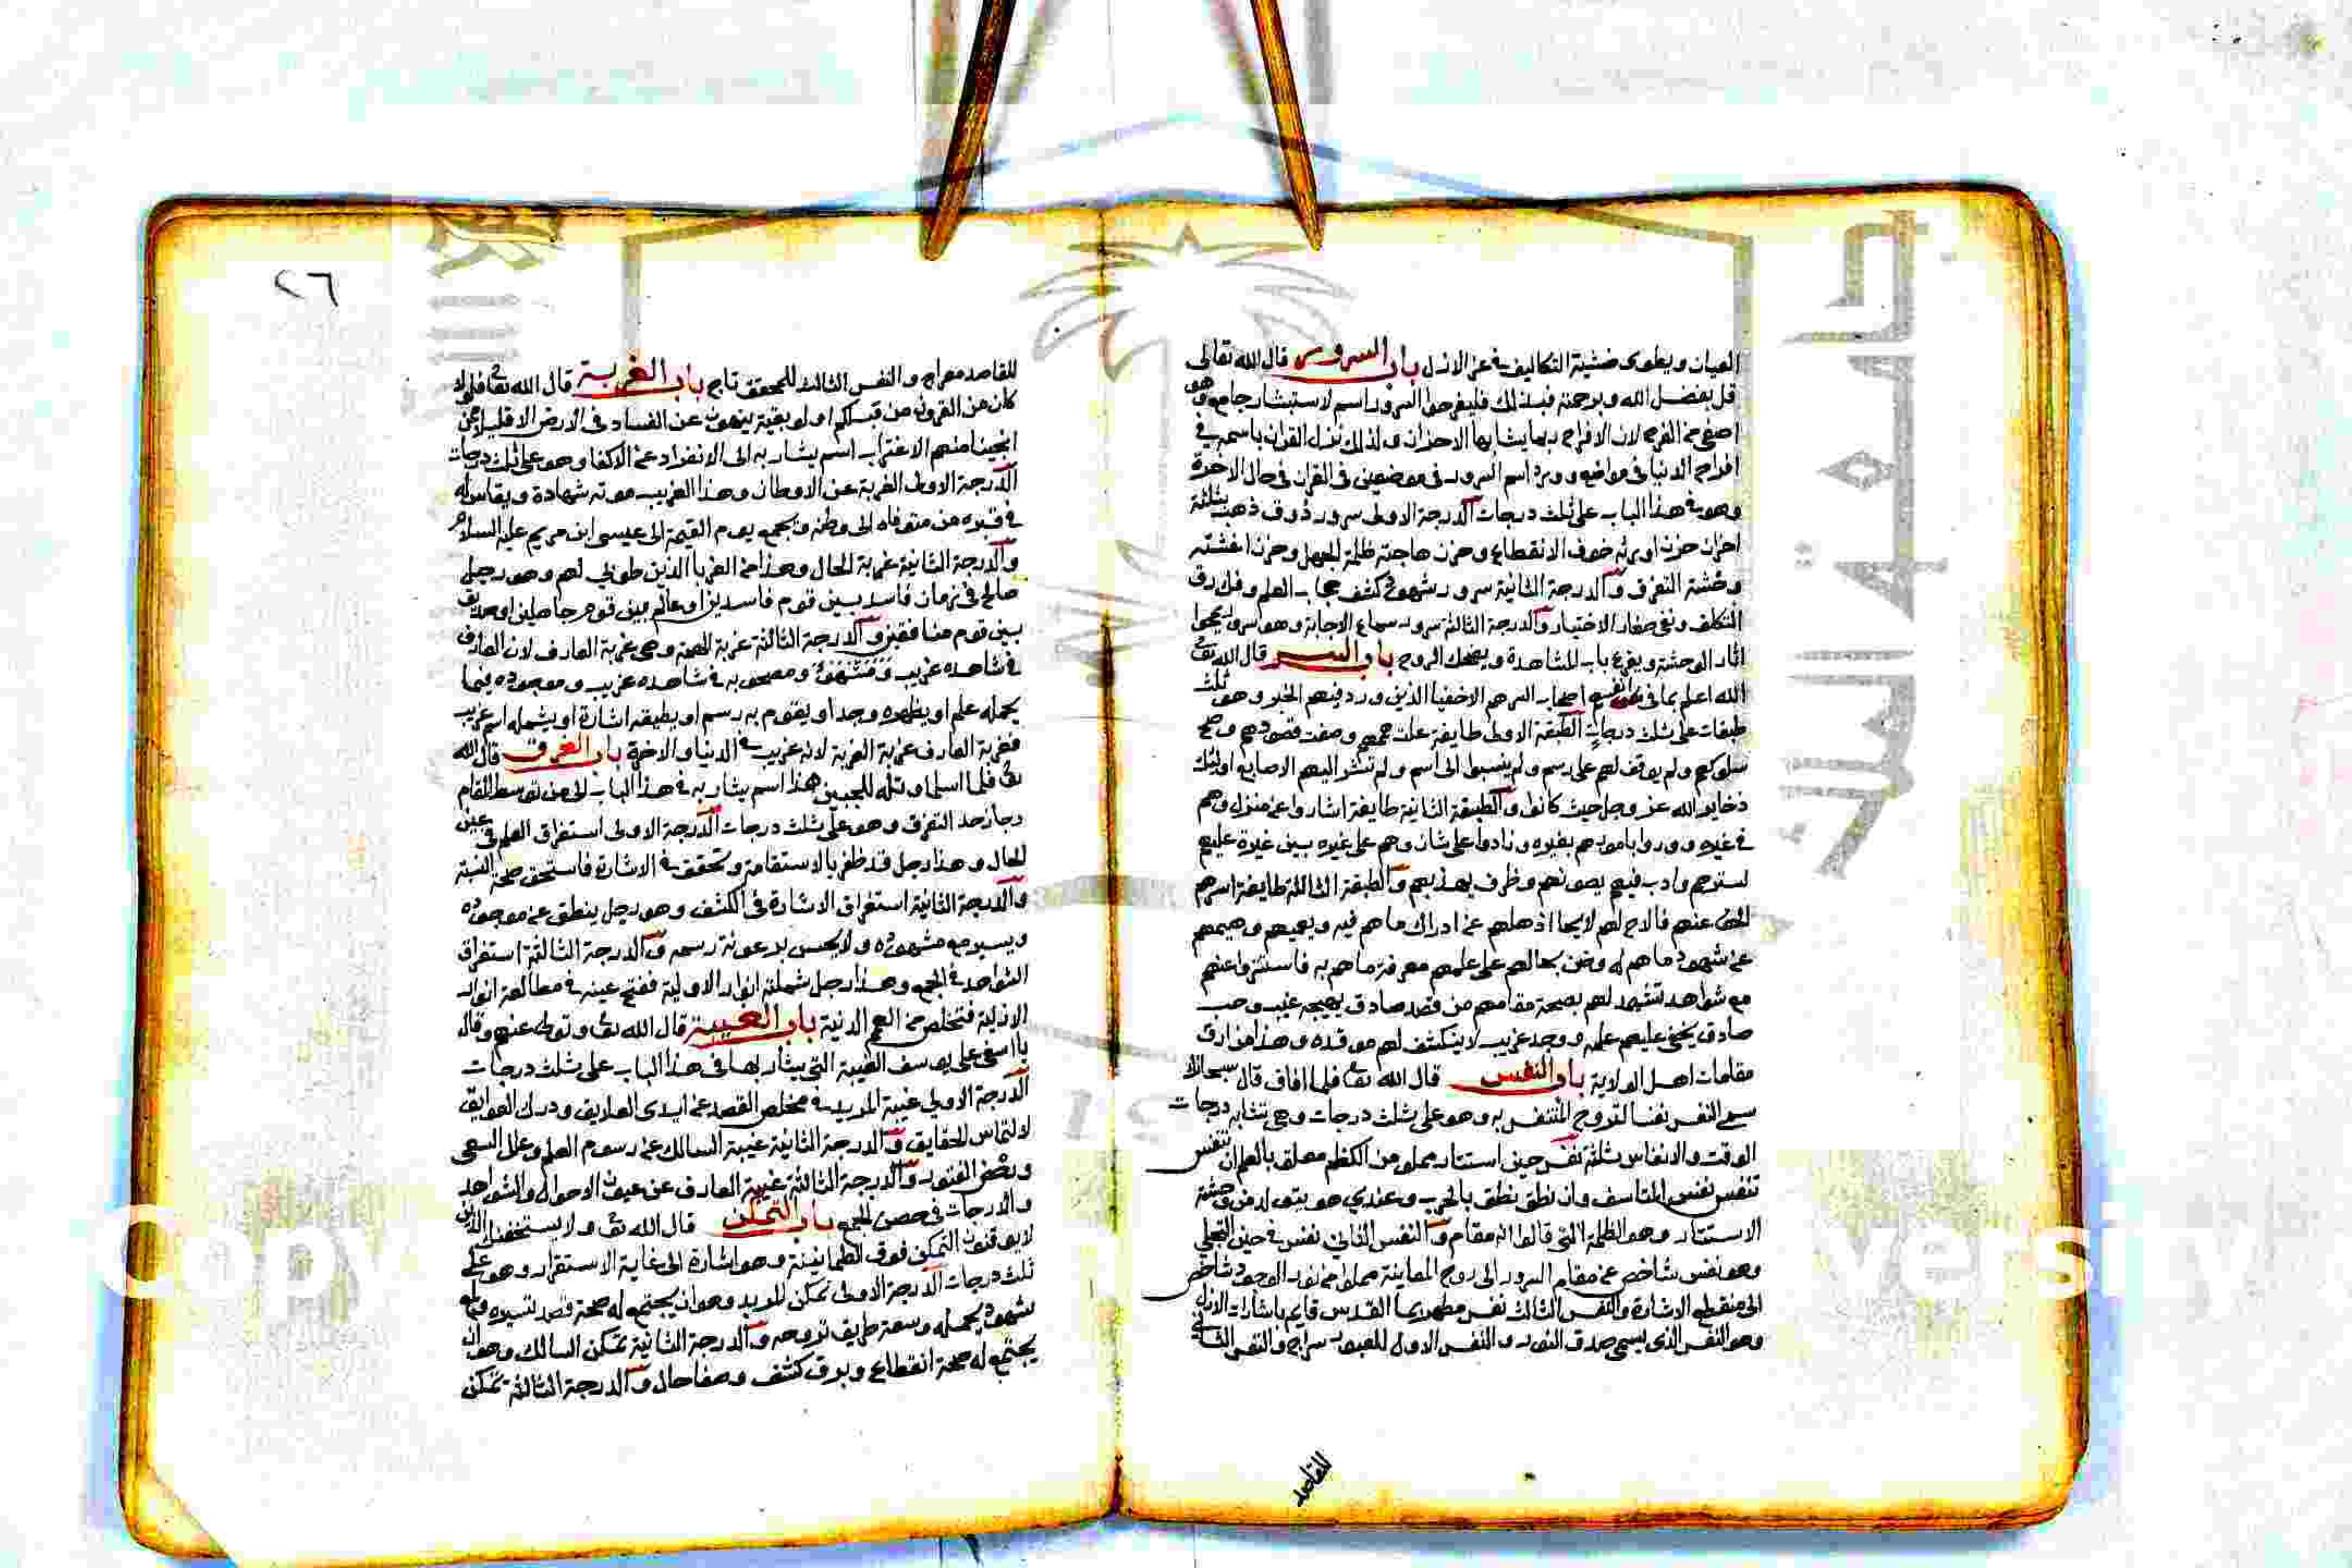 العيان ويطوى خسّة التكاليف في عز الازل باب السرور قال الله تعالى
قل بفضل الله وبرحمته فبذلك فليفرحوا السرور اسم لاستبشار جامع وهو
اصفى من الفرح لان الافراح ربما يشابها الاحزان ولذلك نزل القران باسمه في
افراح الدنيا في مواضع وورد اسم السرور في موضعين في القران في حال الاخرة
وهو في هذا الباب على ثلث درجات الدرجة الاولى سرور ذوق ذهب بثلثة
احزان حزن اورثه خوف الانقطاع وحزن هاجته ظلمة الجهل وحزن اغشته
وحشة التفرق والدرجة الثانية سرور شهود كشف حجاب العلم وفك رق
التكلف ونفى صغار الاختيار والدرجة الثالثة سرور سماع الاجابة وهو سرور يمحوا
اثار الوحشة ويقرع باب المشاهدة ويضحك الروح باب السر قال الله تعا
الله اعلم بما في انفسهم اصحاب السر هم الاخفيا الذين ورد فيهم الخبر وهو ثلث
طبقات على ثلث درجات الطبقة الاولى طايفة علت هممهم وصفت قصودهم وصح
سلوكهم ولم يوقف لهم على رسم ولم ينسبوا الى اسم ولم تشر اليهم الاصابع اوليك
ذخاير الله عز وجل حيث كانوا والطبقة الثانية طايفة اشاروا عن منزل وهم
في غيره ووروا بامور هم بغيره ونادوا على شان وهم على غيره بين غيرة عليهم
تسترهم وادب فيهم يصونهم وظرف يهذبهم والطبقة الثالثة طايفة اسرهم
الحق عنهم فالاح لهم لايحا اذهلهم عن ادراك ما هم فيه وهيمهم
عن شهود ما هم له وضن بحالهم على علمهم معرفة ما هم به فاستتروا عنهم
مع شواهد تشهد لهم بصحة مقامهم من قصد صادق يهيجه غيب وحب
صادق يخفى عليهم علمه ووجد غريب لا ينكشف لهم موقده وهذا من ارق
مقامات اهل الولاية باب النفس قال الله تعا فلما افاق قال سبحانك
سمى النفس نفسا لتروح المتنفس به وهو على ثلث درجات وهي تشابه درجات
الوقت والانفاس ثلثة نفس حين استتار مملو من الكظم معلق بالعلم ان تنفس
تنفس نفس المتاسف وان نطق نطق بالحرب وعندي هو يتولد من وحشة
الاستتار وهو الظلمة التي قالوا انه مقام والنفس الثاني نفس في حين التجلي
وهو نفس شاخص عن مقام السرور الى روح المعاينة مملوا من نور الوجود شاخص
الى منقطع الاشارة والنفس الثالث نفس مطهر بما القدس قايم باشارات الازل
وهو النفس الذي يسمى صدق النور والنفس الاول للغيور سراج والنفس الثاني
للقاصد
٢٦
للقاصد معراج والنفس الثالث للمحقق تاج باب الغربة قال الله تعا فلولا
كان من القرون من قبلكم اولو بقية ينهون عن الفساد في الارض الا قليلا ممن
انجينا منهم الاغتراب اسم يشار به الى الانفراد عن الاكفا وهو على ثلث درجات
الدرجة الاولى الغربة عن الاوطان وهذا الغريب موته شهادة ويقاس له
في قبره من متوفاه الى وطنه ويجمع يوم القيمة الى عيسى ابن مريم عليه السلام
والدرجة الثانية غربة الحال وهذا من الغربا الذين طوبى لهم وهو رجل
صالح في زمان فاسد بين قوم فاسدين او عالم بين قوم جاهلين او صديق
بين قوم منافقين والدرجة الثالثة غربة الهمة وهي غربة العارف لان العارف
في شاهده غريب ومصحوبه في شاهده غريب وموجوده فيما
يحمله علم او يظهره وجد او يقوم به رسم او يطيقه اشارة او يشمله اسم غريب
فغربة العارف غربة الغربة لانه غريب في الدنيا والاخرة باب الغرق قال الله
تعا فلما اسلما وتله للجبين هذا اسم يشار به في هذا الباب الى من توسط المقام
وجاز حد التفرق وهو على ثلث درجات الدرجة الاولى استغراق العلم في عين
الحال وهذا رجل قد ظفر بالاستقامة وتحقق في الاشارة فاستحق صحة النسبة
والدرجة الثانية استغراق الاشارة في الكشف وهو رجل ينطق عن موجوده
ويسير مع مشهوده ولا يحس برعونة رسمه والدرجة الثالثة استغراق
الشواهد في الجمع وهذا رجل شملته انوار الاولية ففتح عينه في مطالعة انوار
الازلية فتخلص من الهمم الدنية باب الغيبة قال الله تعا وتولى عنهم وقال
يا اسفى على يوسف الغيبة التي يشار بها في هذا الباب على ثلث درجات
الدرجة الاولى غيبة المريد في مخلص القصد عن ايدى العلايق ودرك العوايق
لالتماس الحقايق والدرجة الثانية غيبة السالك عن رسوم العلم وعلل السعى
ورخص الفتور والدرجة الثالثة غيبة العارف عن عيون الاحوال والشواهد
والدرجات في حصن الجمع باب التمكن قال الله تعا ولا يستخفنك الذين
لا يوقنون التمكن فوق الطمانينة وهو اشارة الى غاية الاستقرار وهو على
ثلث درجات الدرجة الاولى تمكن المريد وهو ان يجتمع له صحة قصد تسيره ولمع
شهود يحمله وسعة طريق تروحه والدرجة الثانية تمكن السالك وهو ان
يجتمع له صحة انقطاع وبرق كشف وصفا حال والدرجة الثالثة تمكن